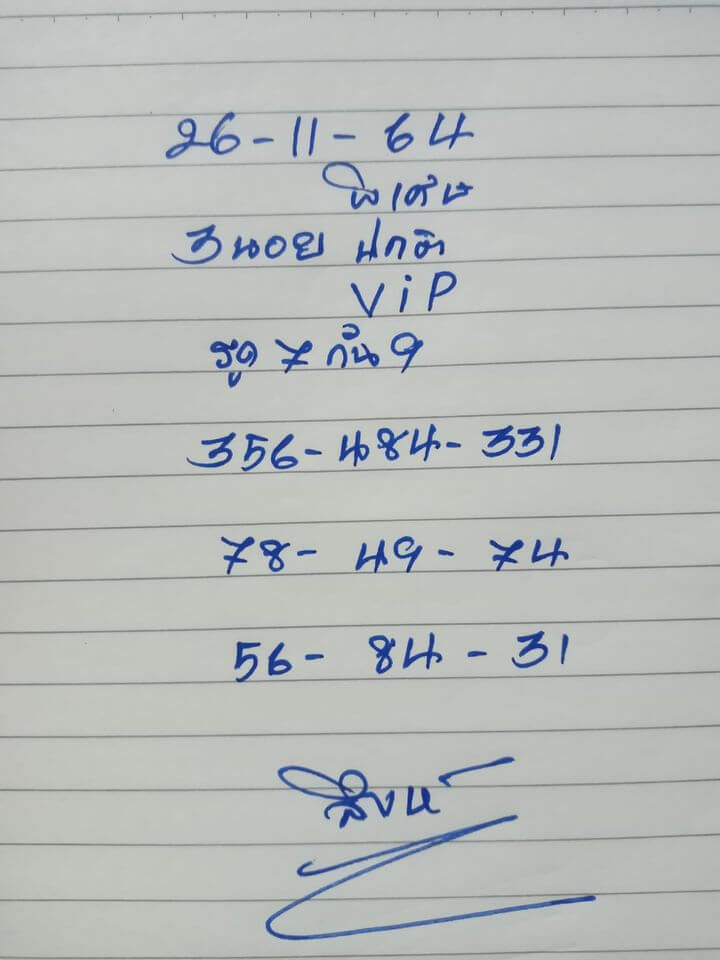 26-11-64
พิเศษ
ฮานอย ปกติ
ViP
รูด 7 กัน 9
356-484-331
78- 49- 74
56- 84- 31
สิงห์